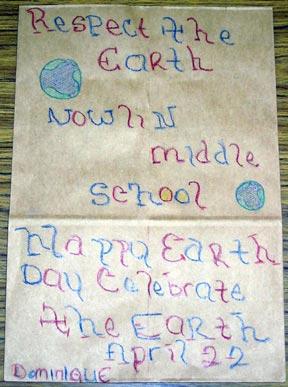 Respect the
Earth
Nowlin
middle
school
Happy Earth
Day Celebrate
the Earth
April 22
Dominique